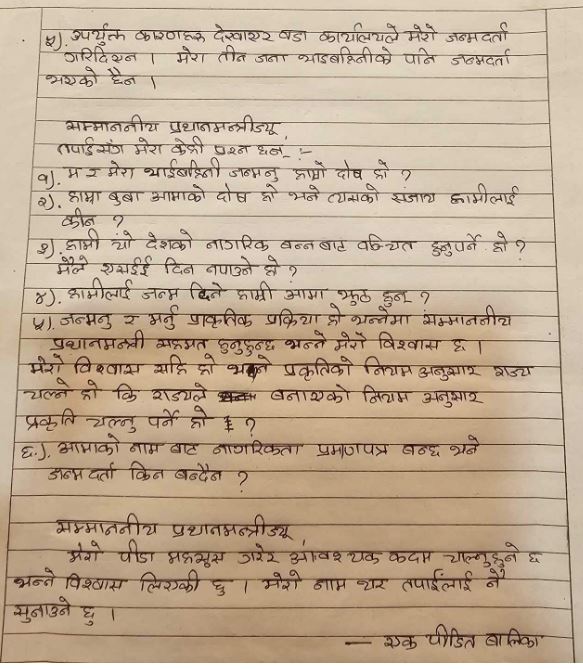 ५). उपर्युक्त कारणहरू देखाएर वडा कार्यालयले मेरो जन्मदर्ता
गरिदिएन । मेरा तीन जना भाइबहिनीको पनि जन्मदर्ता
भएको छैन ।
सम्माननीय प्रधानमन्त्रीज्यू,
तपाईसंग मेरा केही प्रश्न छन् :-
१). म र मेरा भाईबहिनी जन्मनु हाम्रो दोष हो ?
२). हाम्रा बुबा आमाको दोष हो भने त्यसको सजाय हामीलाई
कीन ?
३). हामी यो देशको नागरिक बन्नबाट वञ्चित हुनुपर्ने हो ?
मैले एसईई दिन नपाउने हो ?
४). हामीलाई जन्म दिने हाम्री आमा झुठ हुन् ?
५). जन्मनु र मर्नु प्राकृतिक प्रक्रिया हो भन्नेमा सम्माननीय
प्रधानमन्त्री सहमत हुनुहुन्छ भन्ने मेरो विश्वास छ ।
मेरो विश्वास सहि हो भने प्रकृतिको नियम अनुसार राज्य
चल्ने हो कि राज्यले बनाएको नियम अनुसार
प्रकृति चल्नु पर्ने हो ?
६.). आमाको नाम बाट नागरिकता प्रमाणपत्र बन्छ भने
जन्मदर्ता किन बन्दैन ?
सम्माननीय प्रधानमन्त्रीज्यू,
मेरो पीडा महसुस गरेर आवश्यक कदम चाल्नुहुने छ
भन्ने विश्वास लिएकी छु । मेरो नाम थर तपाईलाई नै
सुनाउने छु ।
— एक पीडित बालिका